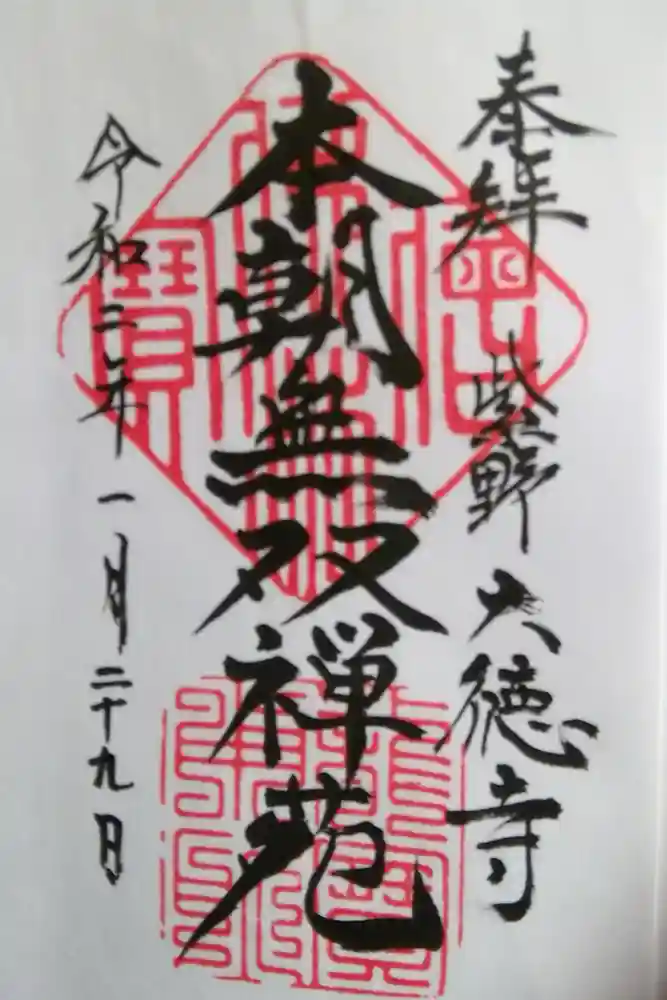 奉拜
紫野
大徳寺
本朝無双禅苑
令和三年一月二十九日